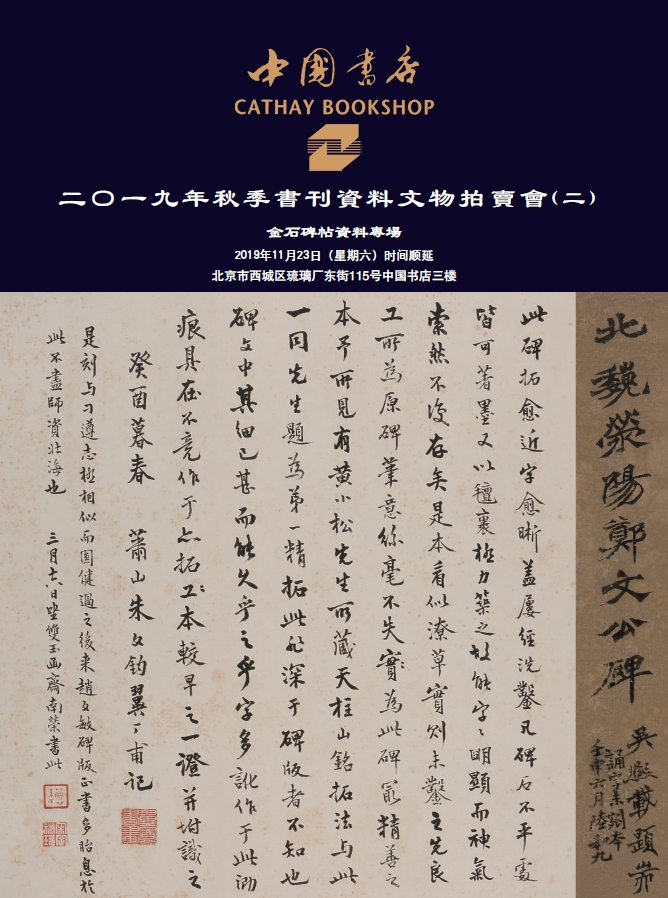 中國書店
CATHAY BOOKSHOP
二〇一九年秋季書刊資料文物拍賣會(二)
金石碑帖資料專場
2019年11月23日（星期六）时间顺延
北京市西城区琉璃厂东街115号中国书店三楼
北魏滎陽鄭文公碑
吳熙載題耑
壬申六月
此碑拓愈近字愈晰蓋屢經洗鑿凡碑石不平處
皆可著墨又以氊裹極力築之故能字字明顯而神氣
索然不復存矣是本看似潦草實則未鑿之先良
工所為原碑筆意絲毫不失實為此碑最精善之
本予所見有黃小松先生所藏天柱山銘拓法與此
一同先生題為第一精拓此非深于碑版者不知也
碑文中其細已甚而能久乎之乎字多訛作于此泐
痕具在不竟作于亦拓工本較早之一證并坿識之
癸酉暮春 蕭山朱文鈞翼厂甫記
是刻与刁遵志極相似而圓健過之後來趙文敏碑版正書多胎息於
此不盡師資北海也 三月十六日坐雙玉函齋南榮書此